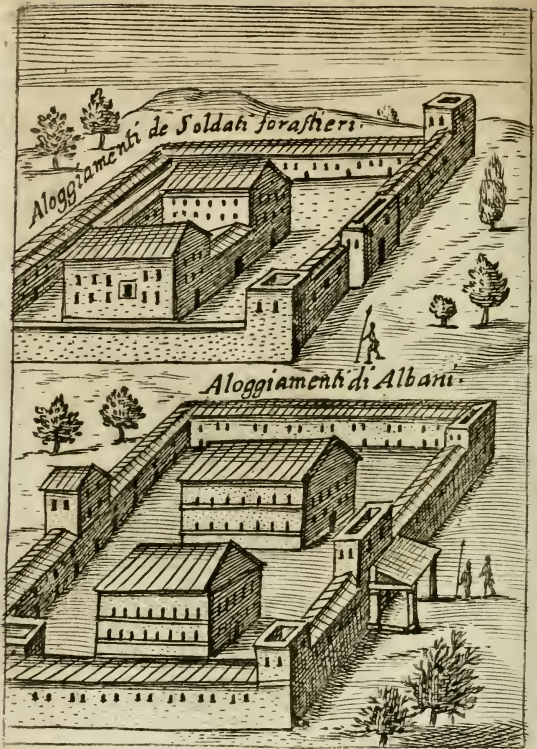 Aloggiamenti de Soldati forastieri.
Aloggiamenti di Albani.